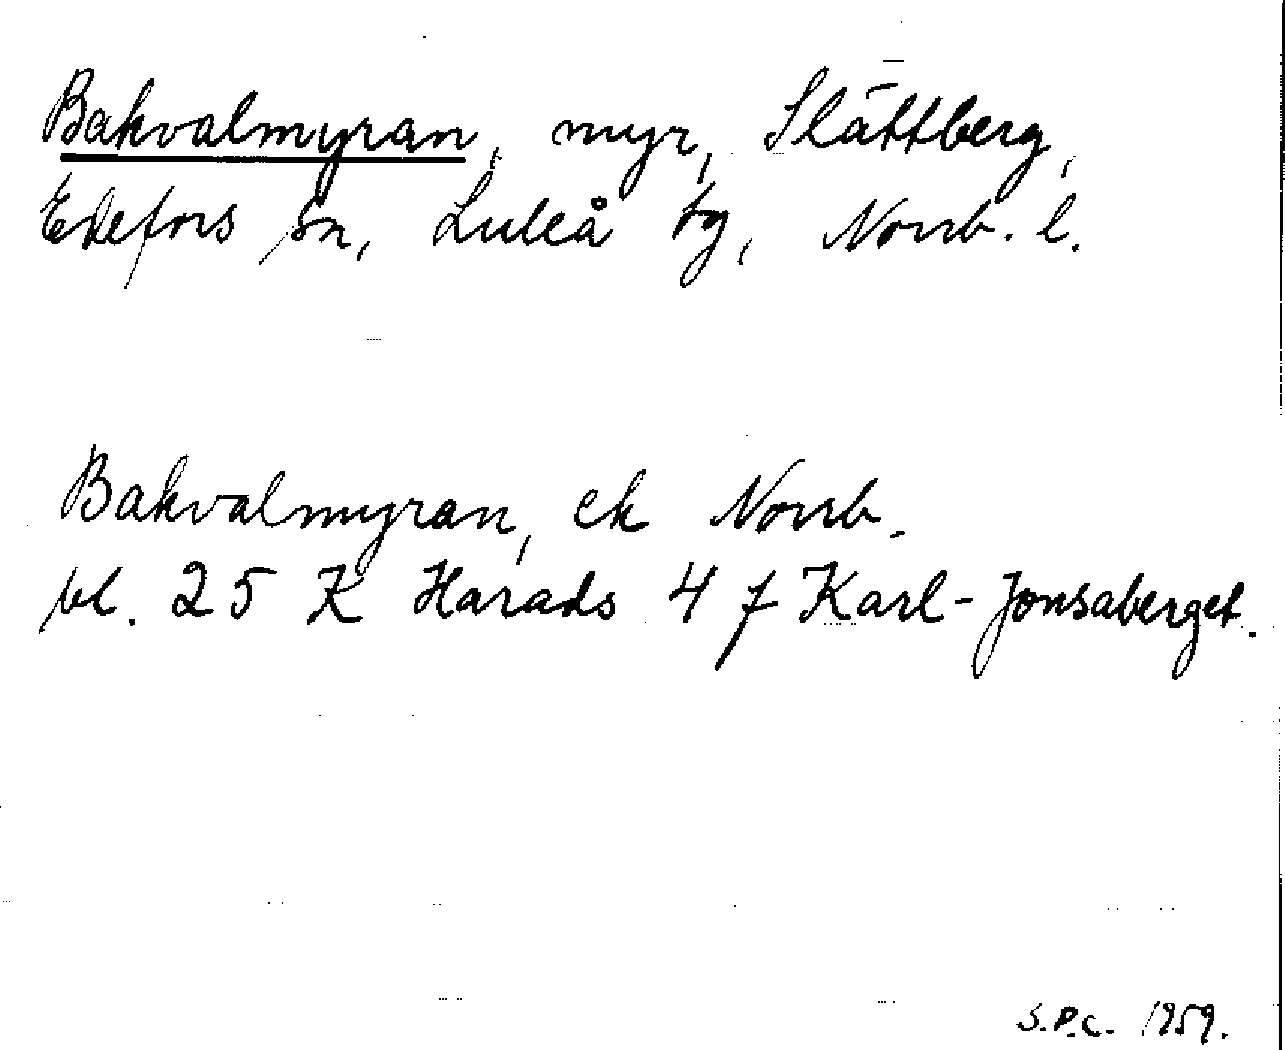 Bakvalmyran, myr, Slättberg,
Edefors sn, Luleå tg, Norrb. l.
Bakvalmyran, ek Norrb.
bl. 25 K Harads 4 f Karl-Jonsaberget.
S.P.C. 1959.